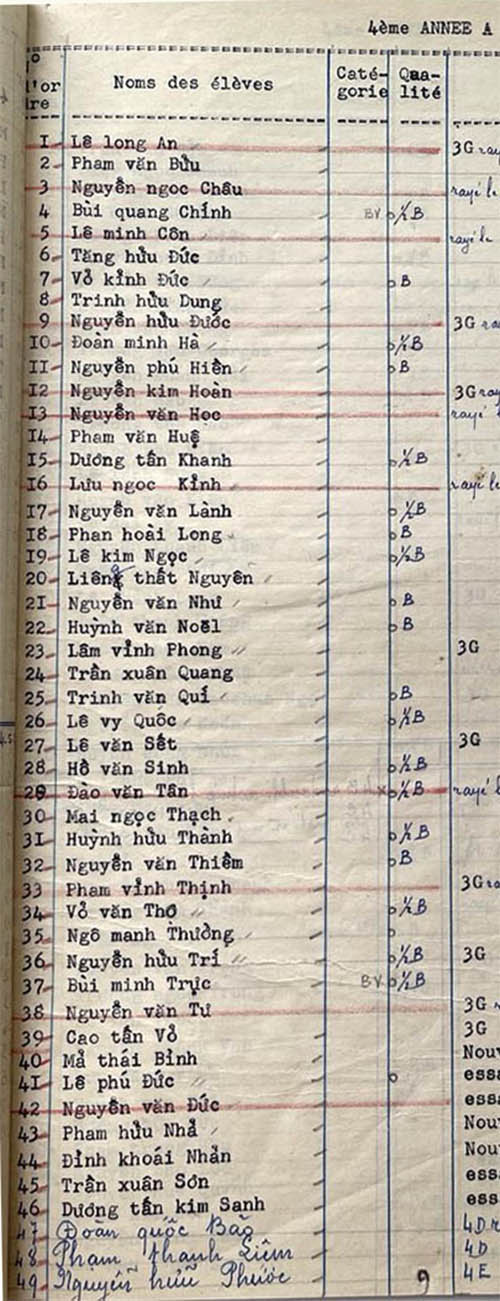 4ème ANNEE A
N° d'or dre Noms des élèves Caté- gorie Qua- lité
1 Lê long An 3G
2 Pham văn Bửu
3 Nguyễn ngoc Châu rayé le
4 Bùi quang Chính BV ½B
5 Lê minh Côn rayé le
6 Tăng hữu Đức
7 Vỏ kỉnh Đức B
8 Trinh hữu Dung
9 Nguyễn hữu Đước 3G
10 Đoàn minh Hà ½B
11 Nguyễn phú Hiền B
12 Nguyễn kim Hoàn 3G ray
13 Nguyễn văn Học rayé
14 Pham văn Huệ
15 Dương tấn Khanh ½B
16 Lưu ngoc Kỉnh rayé le
17 Nguyễn văn Lành ½B
18 Phan hoài Long B
19 Lê kim Ngọc ½B
20 Liêng thất Nguyên
21 Nguyễn văn Như B
22 Huỳnh văn Noël B
23 Lâm vỉnh Phong 3G
24 Trần xuân Quang
25 Trinh văn Quí B
26 Lê vy Quốc ½B
27 Lê văn Sết 3G
28 Hồ văn Sinh ½B
29 Đào văn Tân x ½B rayé
30 Mai ngọc Thạch
31 Huỳnh hữu Thành ½B
32 Nguyễn văn Thiềm B
33 Pham vỉnh Thịnh 3G
34 Vỏ văn Thọ ½B
35 Ngô manh Thưởng
36 Nguyễn hữu Trí ½B 3G
37 Bùi minh Trực BV ½B
38 Nguyễn văn Tư 3G
39 Cao tấn Vỏ 3G
40 Mả thái Bình Nouv
41 Lê phú Đức essa
42 Nguyễn văn Đức essa
43 Pham hữu Nhả Nouv
44 Đỉnh khoái Nhản Nouv
45 Trần xuân Sơn essa
46 Dương tấn kim Sanh ess
47 Đoàn quốc Bảo 4D
48 Phạm thanh Liêm 4D
49 Nguyễn hữu Phước 9 4E